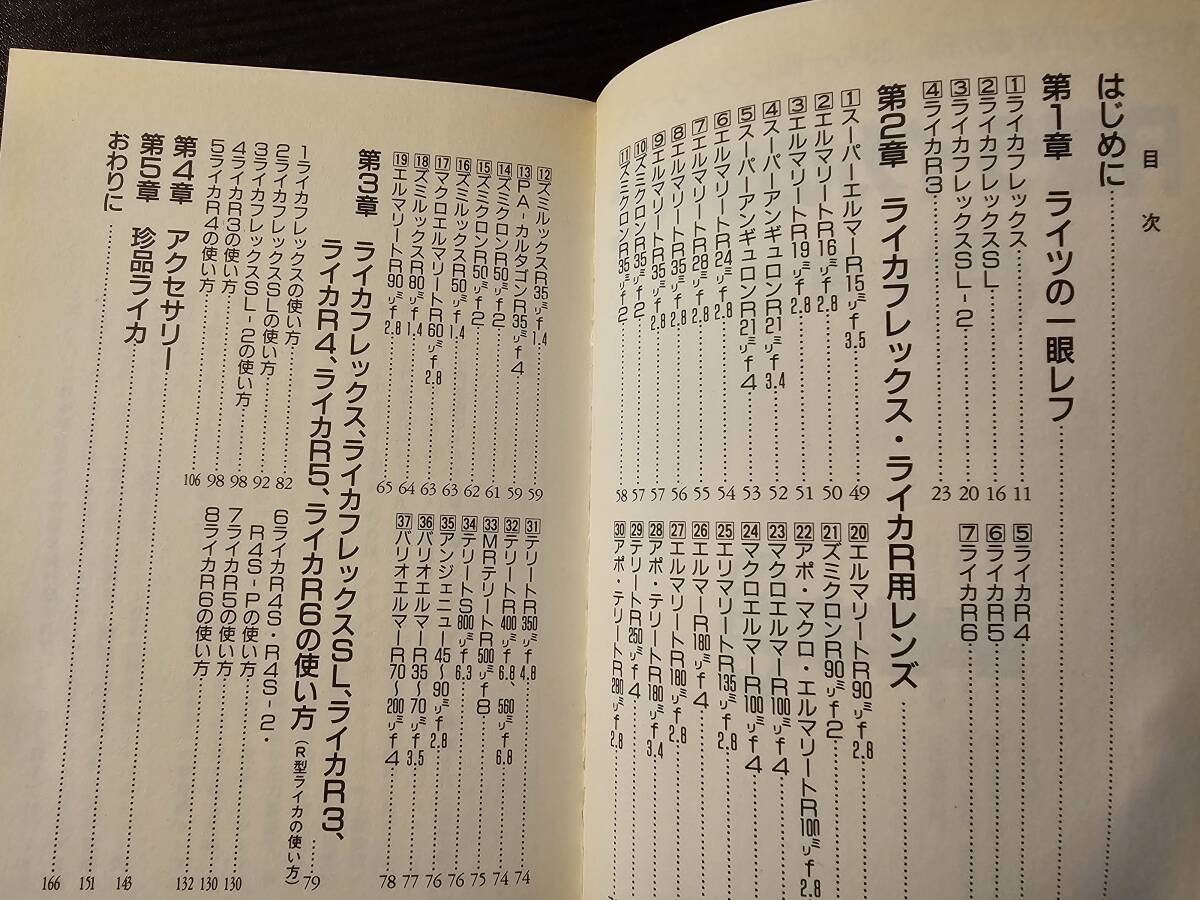 目次
はじめに
第1章 ライツの一眼レフ
1ライカフレックス 11
2ライカフレックスSL 16
3ライカフレックスSL-2 20
4ライカR3 23
5ライカR4
6ライカR5
7ライカR6
第2章 ライカフレックス・ライカR用レンズ
1スーパーエルマーR15㍉f3.5 49
2エルマリートR16㍉f2.8 50
3エルマリートR19㍉f2.8 51
4スーパーアンギュロンR21㍉f3.4 52
5スーパーアンギュロンR21㍉f4 53
6エルマリートR24㍉f2.8 54
7エルマリートR28㍉f2.8 55
8エルマリートR35㍉f2.8 56
9エルマリートR35㍉f2.8 57
10ズミクロンR35㍉f2 57
11ズミクロンR35㍉f2 58
20エルマリートR90㍉f2.8
21ズミクロンR90㍉f2
22アポ・マクロ・エルマリートR100㍉f2.8
23マクロエルマーR100㍉f4
24マクロエルマーR100㍉f4
25エリマリートR135㍉f2.8
26エルマーR180㍉f4
27エルマリートR180㍉f2.8
28アポ・テリートR180㍉f3.4
29テリートR250㍉f4
30アポ・テリートR280㍉f2.8
12ズミルックスR35㍉f1.4 59
13PA-カルタゴンR35㍉f4 59
14ズミクロンR50㍉f2 61
15ズミクロンR50㍉f2 62
16ズミルックスR50㍉f1.4 63
17マクロエルマリートR60㍉f2.8 63
18ズミルックスR80㍉f1.4 64
19エルマリートR90㍉f2.8 65
31テリートR350㍉f4.8 74
32テリートR400㍉f6.8、560㍉f6.8 74
33MRテリートR500㍉f8 75
34テリートS800㍉f6.3 76
35アンジェニュー45〜90㍉f2.8 76
36バリオエルマーR35〜70㍉f3.5 77
37バリオエルマーR70〜200㍉f4 78
第3章 ライカフレックス、ライカフレックスSL、ライカR3、
ライカR4、ライカR5、ライカR6の使い方(R型ライカの使い方) 79
1ライカフレックスの使い方 82
2ライカフレックスSLの使い方 92
3ライカフレックスSL-2の使い方 98
4ライカR3の使い方 98
5ライカR4の使い方 106
6ライカR4S・R4S-2・
R4S-Pの使い方 130
7ライカR5の使い方 130
8ライカR6の使い方 132
第4章 アクセサリー 143
第5章 珍品ライカ 151
おわりに 166